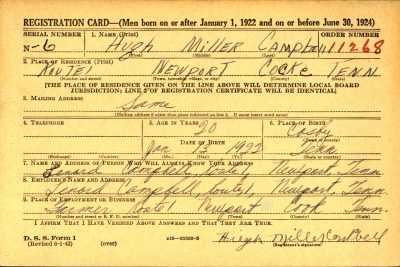 REGISTRATION CARD—(Men born on or after January 1, 1922 and on or before June 30, 1924)
SERIAL NUMBER 1. NAME (Print) ORDER NUMBER
N-6 Hugh Miller Campbell 11268
2. PLACE OF RESIDENCE (Print)
Route 1 Newport Cocke Tenn
(Number and street) (Town, township, village, or city) (County) (State)
[THE PLACE OF RESIDENCE GIVEN ON THE LINE ABOVE WILL DETERMINE LOCAL BOARD
JURISDICTION; LINE 2 OF REGISTRATION CERTIFICATE WILL BE IDENTICAL]
3. MAILING ADDRESS
Same
[Mailing address if other than place indicated on line 2. If same insert word same]
4. TELEPHONE 5. AGE IN YEARS 6. PLACE OF BIRTH
20 Cosby
DATE OF BIRTH (Town or county)
Jan 13 1922 Tenn
(Exchange) (Number) (Mo.) (Day) (Yr.) (State or country)
7. NAME AND ADDRESS OF PERSON WHO WILL ALWAYS KNOW YOUR ADDRESS
Lenard Campbell, Route 1, Newport, Tenn.
8. EMPLOYER'S NAME AND ADDRESS
Lenard Campbell, Route 1, Newport, Tenn.
9. PLACE OF EMPLOYMENT OR BUSINESS
Farmer Route 1 Newport Cook Tenn.
(Number and street or R. F. D. number) (Town) (County) (State)
I AFFIRM THAT I HAVE VERIFIED ABOVE ANSWERS AND THAT THEY ARE TRUE.
D. S. S. Form 1
(Revised 6-1-42) (over) Hugh Miller Campbell
(Registrant's signature)